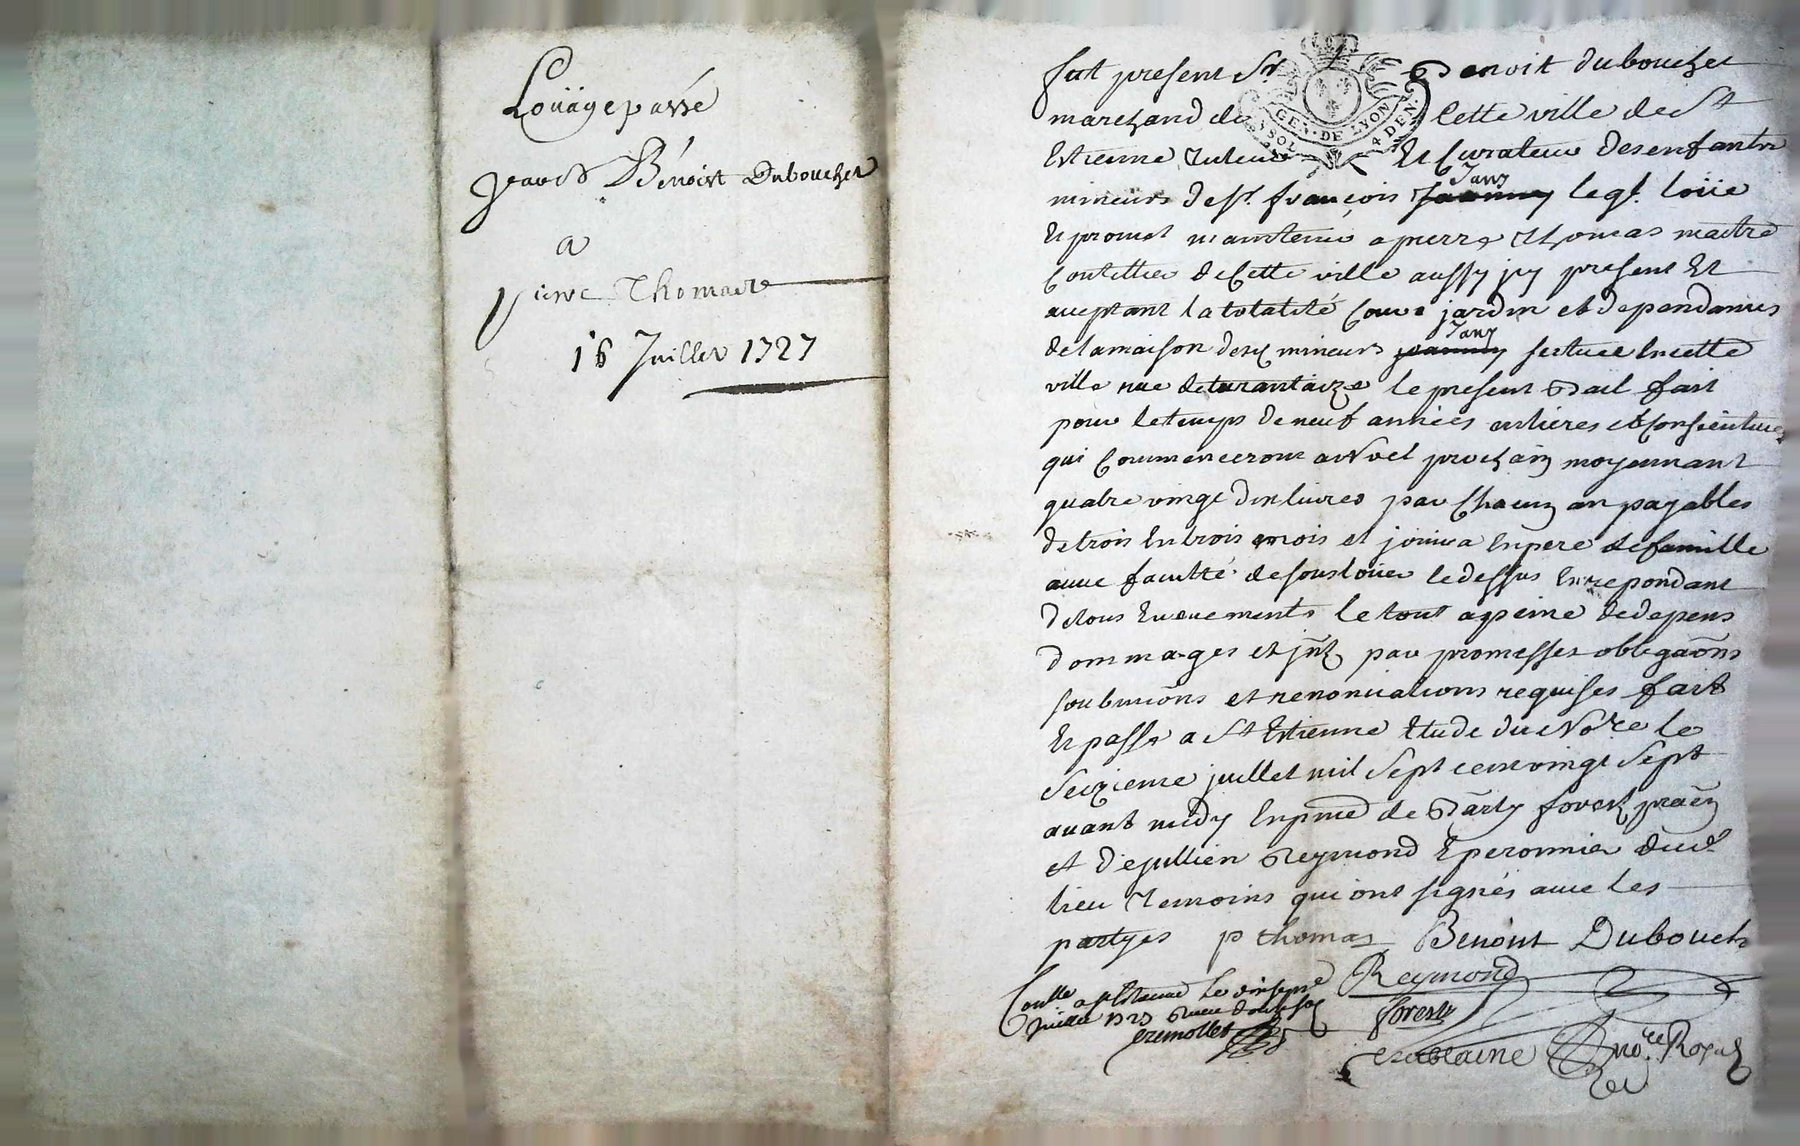 Loüage passé
par sr Bénoist Dubouchet
a
pierre Thomas
16 Juillet 1727
fut present Sr Benoit dubouchet
GEN. DE LYON
4 DEN.
marchand de cette ville de St
Estienne tuteur et curateur des enfants
mineurs de sr. françois Jany legl. loüe
et promet maintenir a pierre thomas maitre
coutellier de cette ville aussy jcy present et
aceptant la totalité cour jardin et dependances
de la maison desd mineurs Jany scituee en cette
ville rue de tarantaize le present bail fait
pour le temps de neuf années entieres et consecutives
qui commenceront a Noel prochain moyennant
quatre vingt dix livres par chacun an payables
de trois en trois mois et jouira en pere de famille
avec faculté de souslouer le dessus en repondant
de tous evenements le tout a peine de depens
dommages et jnts par promesses obligaõns
soubmiõns et renonciations requises fait
et passé a St Estienne etude du Nore le
seizieme juillet mil sept cent vingt sept
avant midy en pnce de Barty forest praen
et de jullien Reymond Eperonnier dud
lieu temoins qui ont signés avec les
partyes p thomas Benoint Dubouch
Reymond
Conlle a st Etienne le dixsept
juillet 1727 Receu douze sols
forest
nore Royal